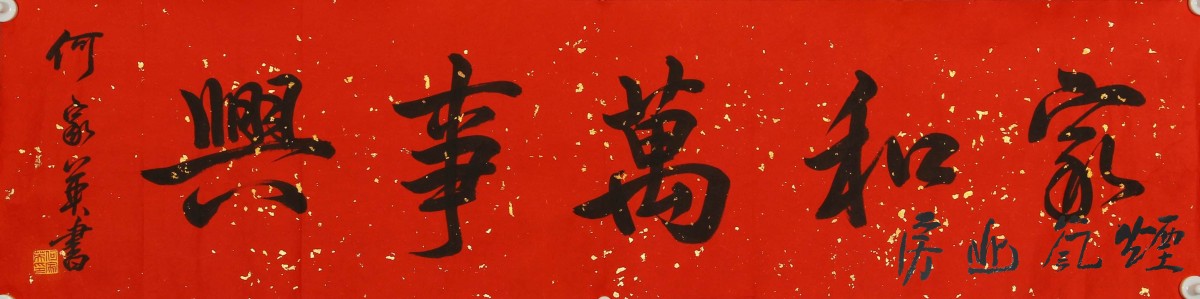 家和萬事興
煙氣房
何家英書